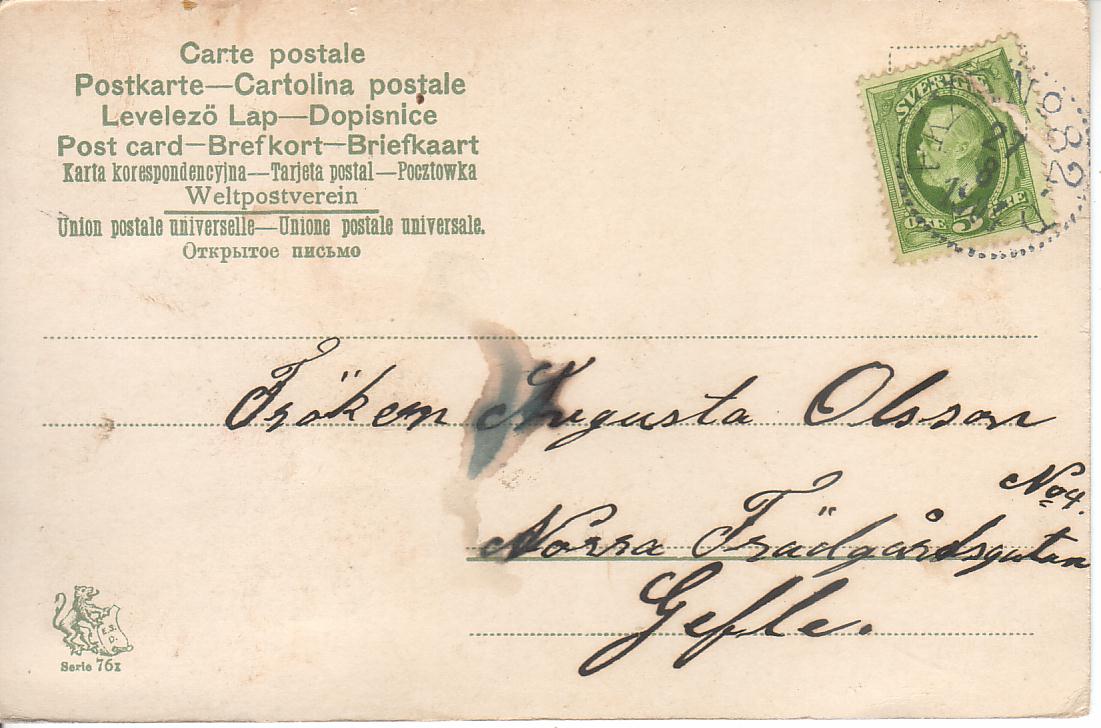 Carte postale
Postkarte—Cartolina postale
Levelező Lap—Dopisnice
Post card—Brefkort—Briefkaart
Karta korespondencyjna—Tarjeta postal—Pocztowka
Weltpostverein
Union postale universelle—Unione postale universale.
Открытое письмо
SVERIGE
5
No 82
27
Fröken Augusta Olsson
No 4.
Norra Trädgårdsgatan
Gefle.
E.S.
D.
Serie 76I